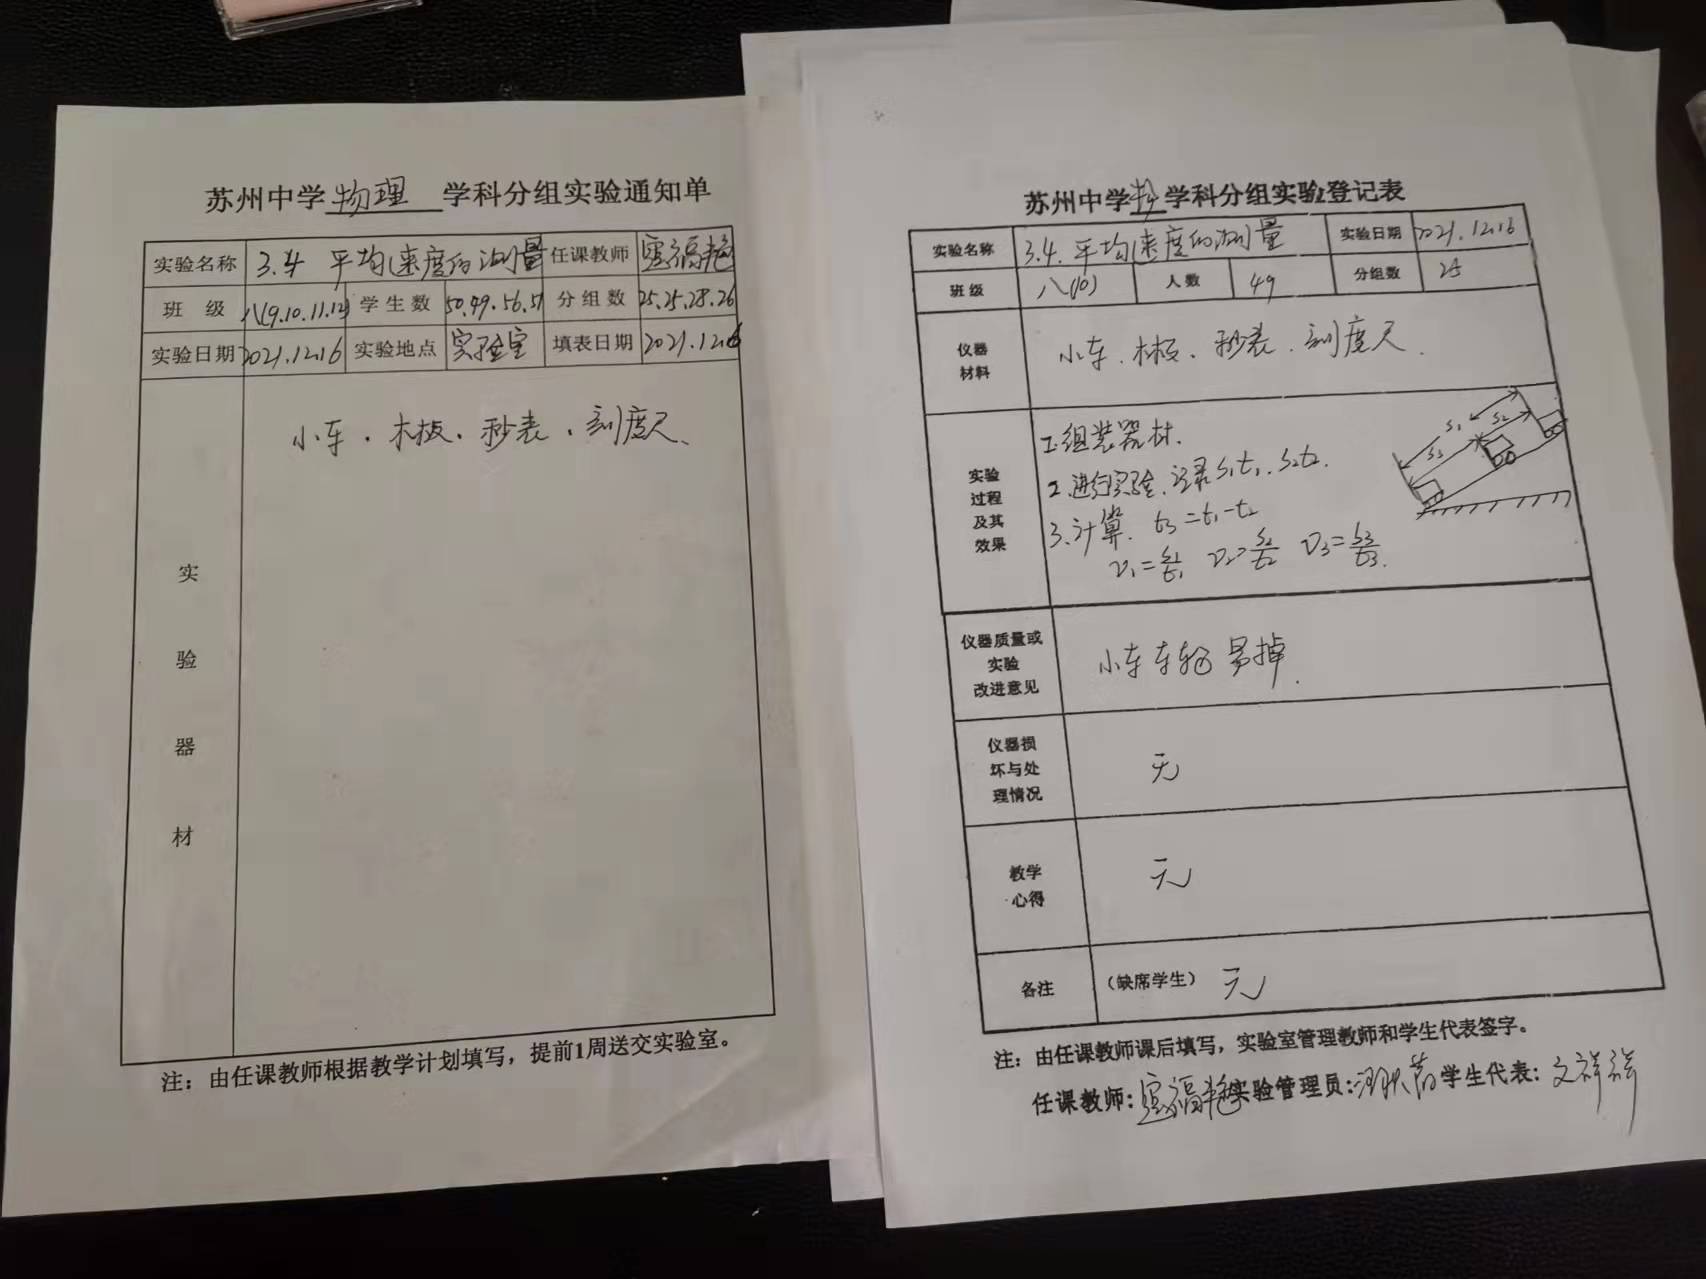 苏州中学物理 学科分组实验通知单
实验名称 3.4 平均速度的测量 任课教师
班 级 八(9.10.11.12) 学生数 50.49.56.51 分组数 25.25.28.26
实验日期 2021.12.16 实验地点 实验室 填表日期 2021.12.6
实验器材
小车.木板.秒表.刻度尺.
注：由任课教师根据教学计划填写，提前1周送交实验室。
苏州中学物 学科分组实验登记表
实验名称 3.4.平均速度的测量 实验日期 2021.12.16
班级 八(10) 人数 49 分组数 25
仪器
材料
小车.木板.秒表.刻度尺.
实验
过程
及其
效果
1.组装器材.
2.进行实验.记录S₁t₁.S₂t₂.
3.计算. t₃=t₁-t₂
v₁=S₁/t₁ v₂=S₂/t₂ v₃=S₃/t₃.
S₁ S₂
S₃
仪器质量或
实验
改进意见
小车车轮易掉.
仪器损
坏与处
理情况
无
教学
心得
无
备注 (缺席学生) 无
注：由任课教师课后填写，实验室管理教师和学生代表签字。
任课教师: 实验管理员: 学生代表: 文祥祥